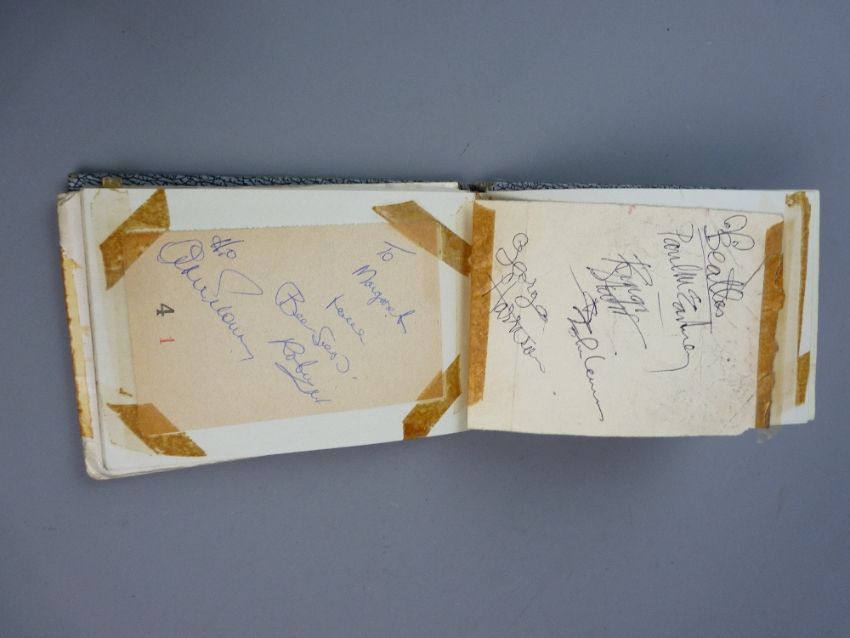 To
Margaret
Love
Bee Gees
Robin
4
1
Beatles
Paul McCartney
Ringo
Starr
John Lennon
George
Harrison